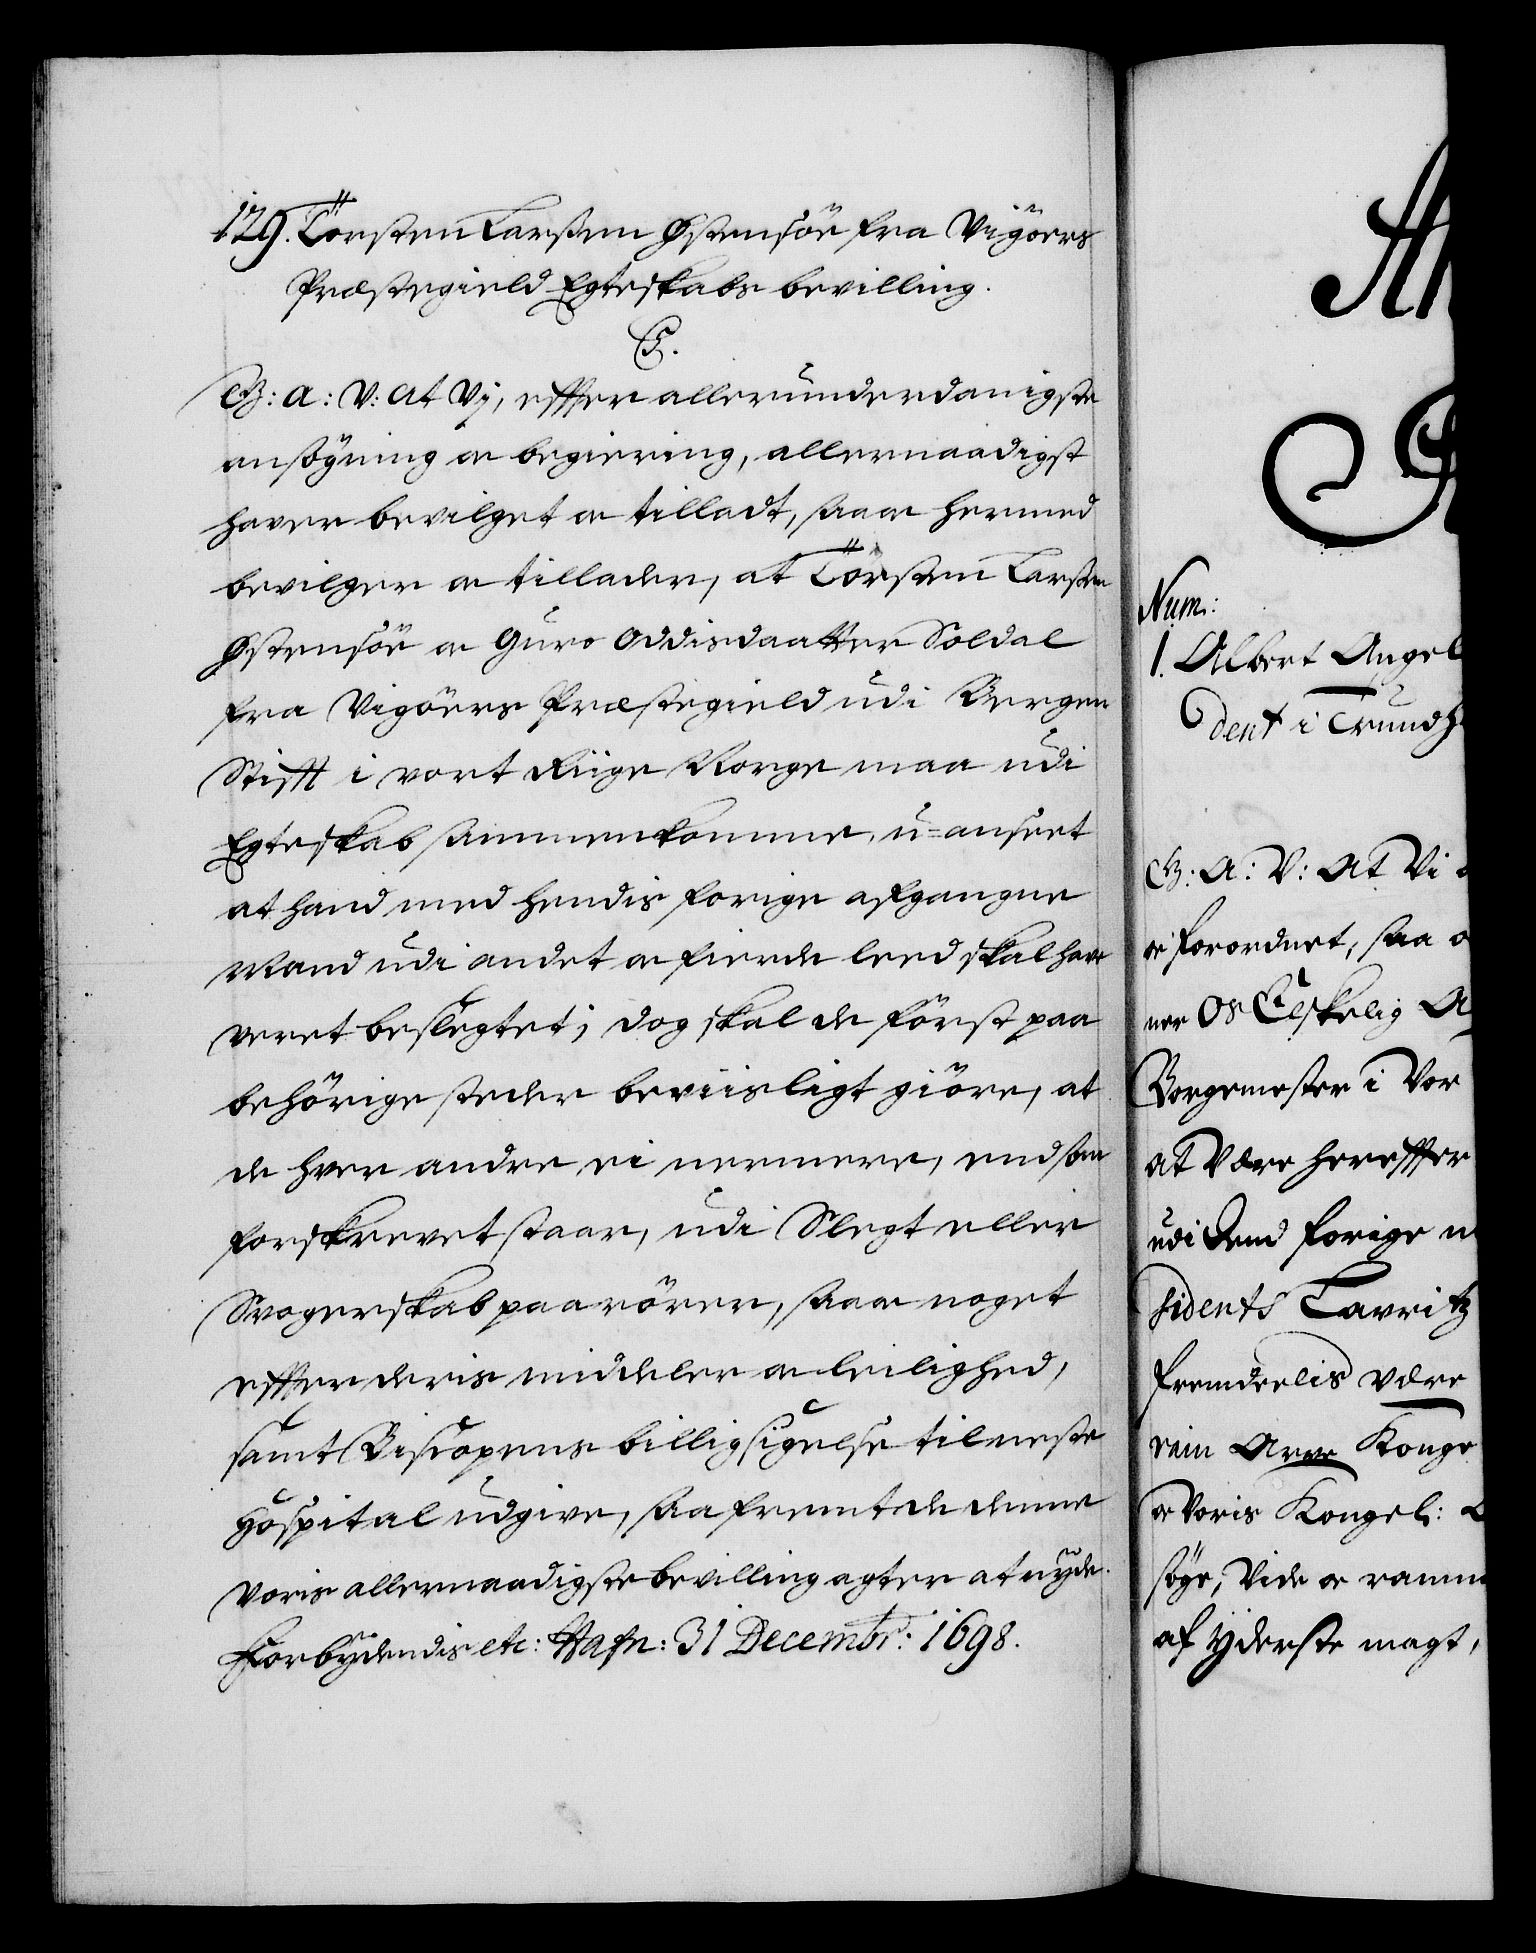 129. Törsten Larssen Østensöe fra Vigöers
Præstegield Egteskabs bevilling.
C5.
G: A: V: At Vj, effter allerunderdanigste
ansögning oc begiering, allernaadigst
haver bevilget oc tilladt, saa oc hermed
bevilger oc tillader, at Törsten Larsen
Østensöe oc Guro Oddisdaatter Soldal
fra Vigöers Præstegield udi Bergen
Stifft i vort Riige Norge maa udi
Egteskab sammenkomme, u-anseet
at hand med hendis forige afgangne
Mand udi andet oc fierde leed skal have
veret beslegtet; dog skal de först paa
behörige steder beviisligt giöre, at
de hver andre ei nermere, end som
forskrevet staar, udi Slegt eller
Svogerskab paarörer, saa oc noget
effter deris middeler oc leilighed,
samt Biscopens billigsigelse til neste
Hospital udgive, saa fremt de denne
Voris allernaadigste bevilling agter at nyde.
Forbydendis etc: Hafn: 31 Decembr: 1698.
Num:
1. Albert Angel
dent i Trundh
G: A: V: At Vi
oc forordnet, saa o
ner Os Elskelig A
Borgemester i Vor
at Være hereffter
udi dend forige
sidents Lavritz
fremdeelis Være
rain Arve Konge
oc Voris Kongel:
söge, Vide oc ramme
af yderste magt,